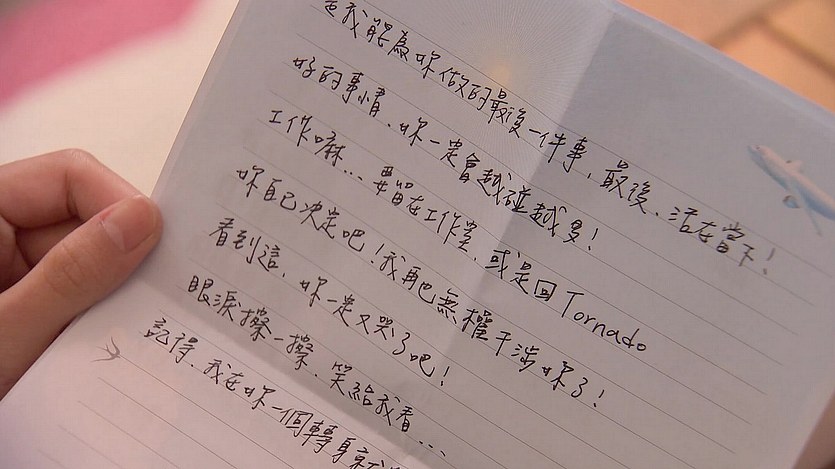 是我能為妳做的最後一件事，最後，活在當下！
好的事情，妳一定會越碰越多！
工作嘛...要留在工作室，或是回Tornado
妳自己決定吧！我再也無權干涉妳了！
看到這，妳一定又哭了吧！
眼淚擦一擦，笑給我看...
記得，我在妳一個轉身就